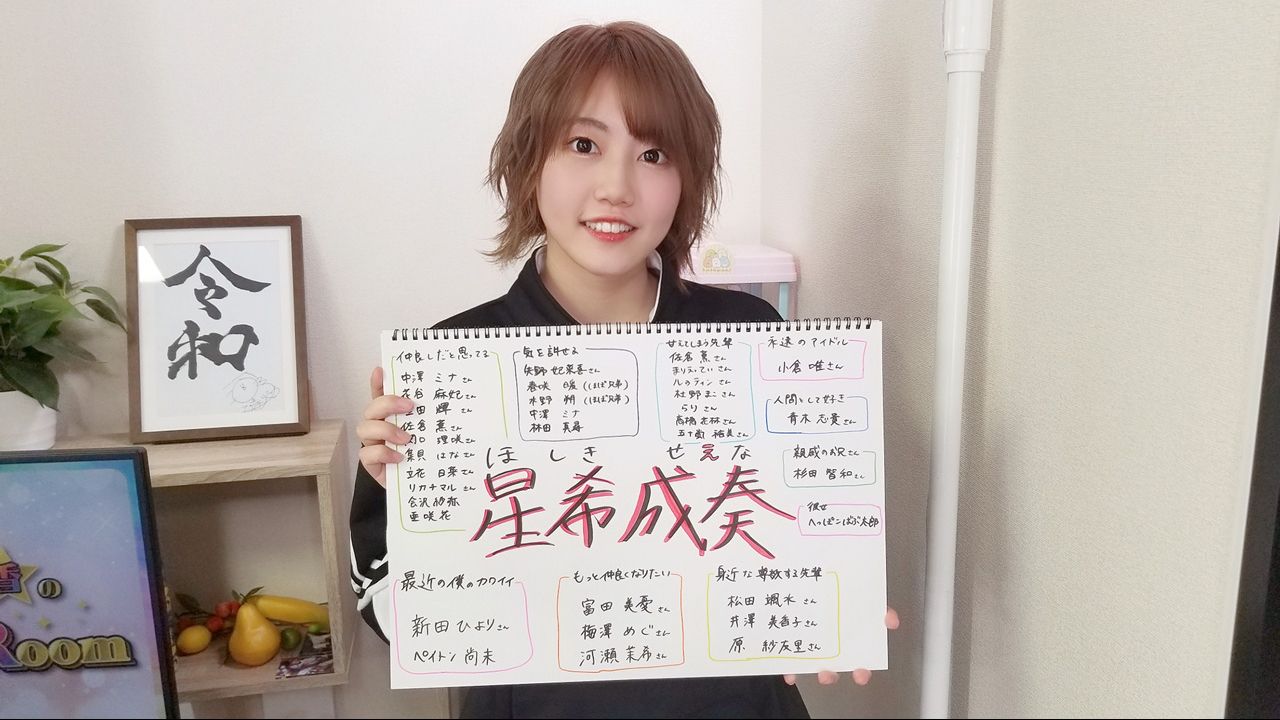 令和
仲良しだと思ってる
中澤 ミナさん
花店 麻妃さん
田 輝 さん
佐倉 薫さん
口 理咲さん
集貝 はなさん
立花 日菜さん
リカナマル さん
会沢 紗弥
亜咲花
気を許せる
矢野 妃菜喜さん
春咲 暖(ほぼ兄弟)
水野 朔(ほぼ兄弟)
中澤 ミナ
林田 真尋
甘えてしまう先輩
佐倉 薫さん
まりえってぃ さん
ルゥティン さん
杜野 まこさん
らり さん
高橋 花林さん
五十嵐 裕美さん
永遠のアイドル
小倉 唯さん
人間として好き
青木 志貴さん
親戚のお兄さん
杉田 智和さん
彼女
へっぽこぱぷ太郎
ほしき せえな
星希成奏
最近の僕のカワイイ
新田 ひよりさん
ペイトン 尚未
もっと仲良くなりたい
富田 美憂さん
梅澤 めぐさん
河瀬 茉希さん
身近な尊敬する先輩
松田 颯水さん
井澤 美香子さん
原 紗友里さん
の
Room